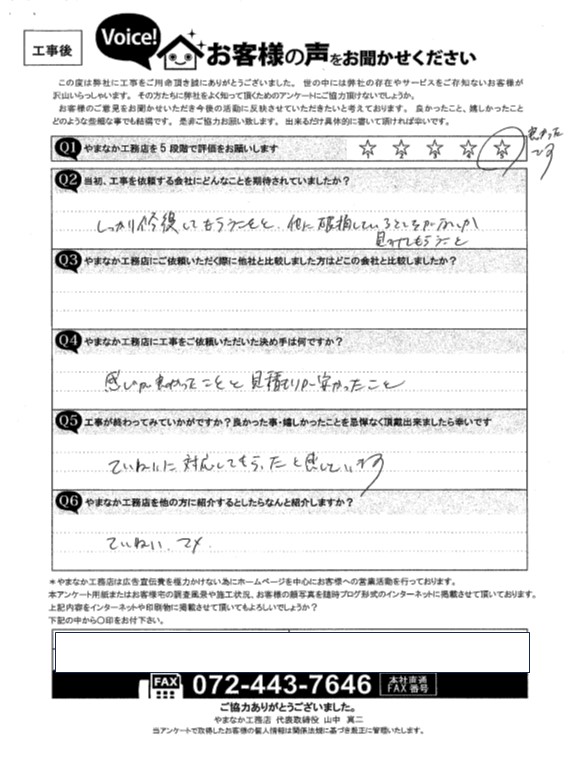 工事後
Voice!
お客様の声をお聞かせください
この度は弊社に工事をご用命頂き誠にありがとうございました。世の中には弊社の存在やサービスをご存知ないお客様が
沢山いらっしゃいます。その方たちに弊社をよく知って頂くためのアンケートにご協力頂けないでしょうか。
お客様のご意見をお聞かせいただき今後の活動に反映させていただきたいと考えております。良かったこと、嬉しかったこと
どのような些細な事でも結構です。是非ご協力お願い致します。出来るだけ具体的に書いて頂ければ幸いです。
Q1 やまなか工務店を5段階で評価をお願いします
☆1 ☆2 ☆3 ☆4 ☆5
良かった
です
Q2 当初、工事を依頼する会社にどんなことを期待されていましたか?
しっかり修復してもらうことと、他に破損しているところがないか
見つけてもらうこと
Q3 やまなか工務店にご依頼いただく際に他社と比較しました方はどこの会社と比較しましたか?
Q4 やまなか工務店に工事をご依頼いただいた決め手は何ですか?
感じが良かったことと見積もりが安かったこと
Q5 工事が終わってみていかがですか?良かった事・嬉しかったことを忌憚なく頂戴出来ましたら幸いです
ていねいに対応してもらったと感じています
Q6 やまなか工務店を他の方に紹介するとしたらなんと紹介しますか?
ていねい、マメ
*やまなか工務店は広告宣伝費を極力かけない為にホームページを中心にお客様への営業活動を行っております。
本アンケート用紙またはお客様宅の調査風景や施工状況、お客様の顔写真を随時ブログ形式のインターネットに掲載させて頂いております。
上記内容をインターネットや印刷物に掲載させて頂いてもよろしいでしょうか?
下記の中から〇印をお付下さい。
FAX 072-443-7646 本社直通
FAX番号
ご協力ありがとうございました。
やまなか工務店 代表取締役 山中 真二
当アンケートで取得したお客様の個人情報は関係法規に基づき厳正に管理いたします。